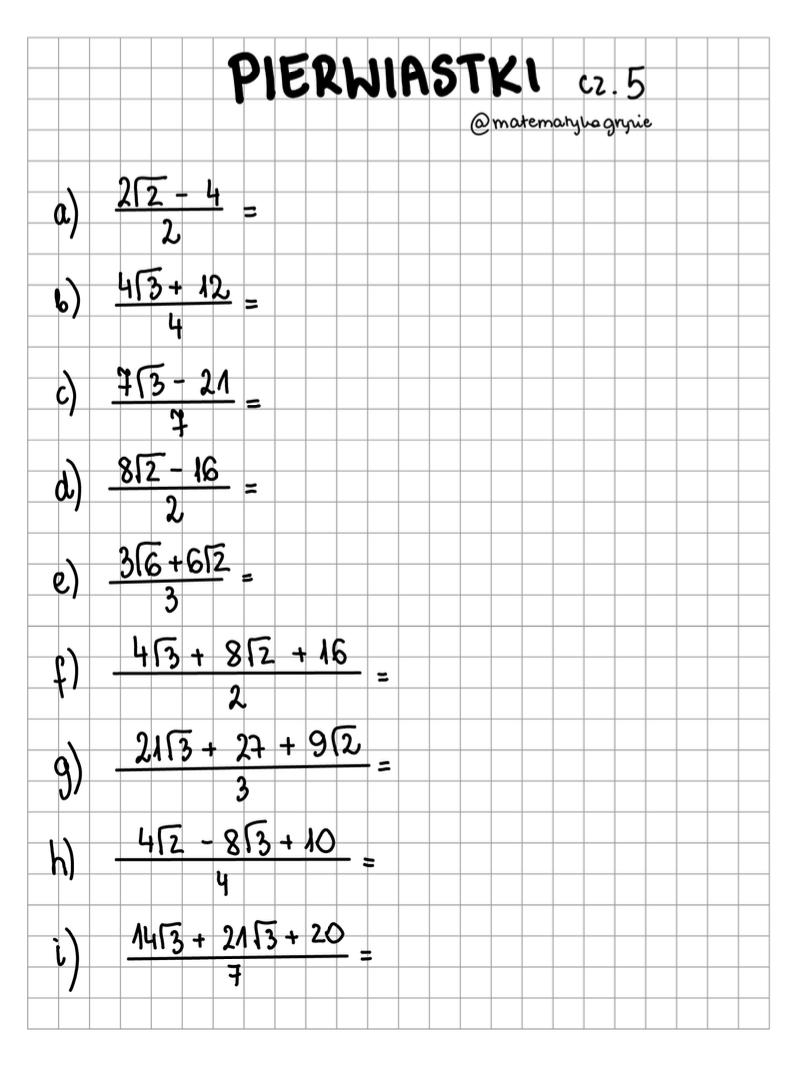 PIERWIASTKI cz. 5
@matematykagryzie
a) (2√2 - 4)/2 =
b) (4√3 + 12)/4 =
c) (7√3 - 21)/7 =
d) (8√2 - 16)/2 =
e) (3√6 + 6√2)/3 =
f) (4√3 + 8√2 + 16)/2 =
g) (21√3 + 27 + 9√2)/3 =
h) (4√2 - 8√3 + 10)/4 =
i) (14√3 + 21√3 + 20)/7 =